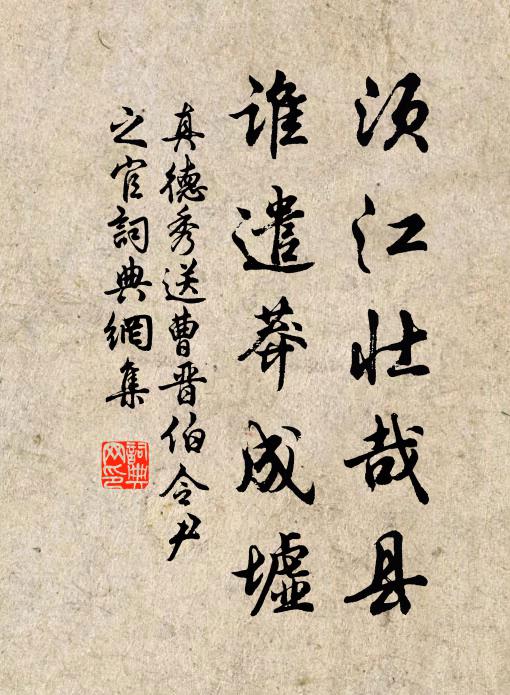 須江壮哉县
誰遣莽成墟
真德秀送曹晋伯令尹
之官詞典網集
詞典网印